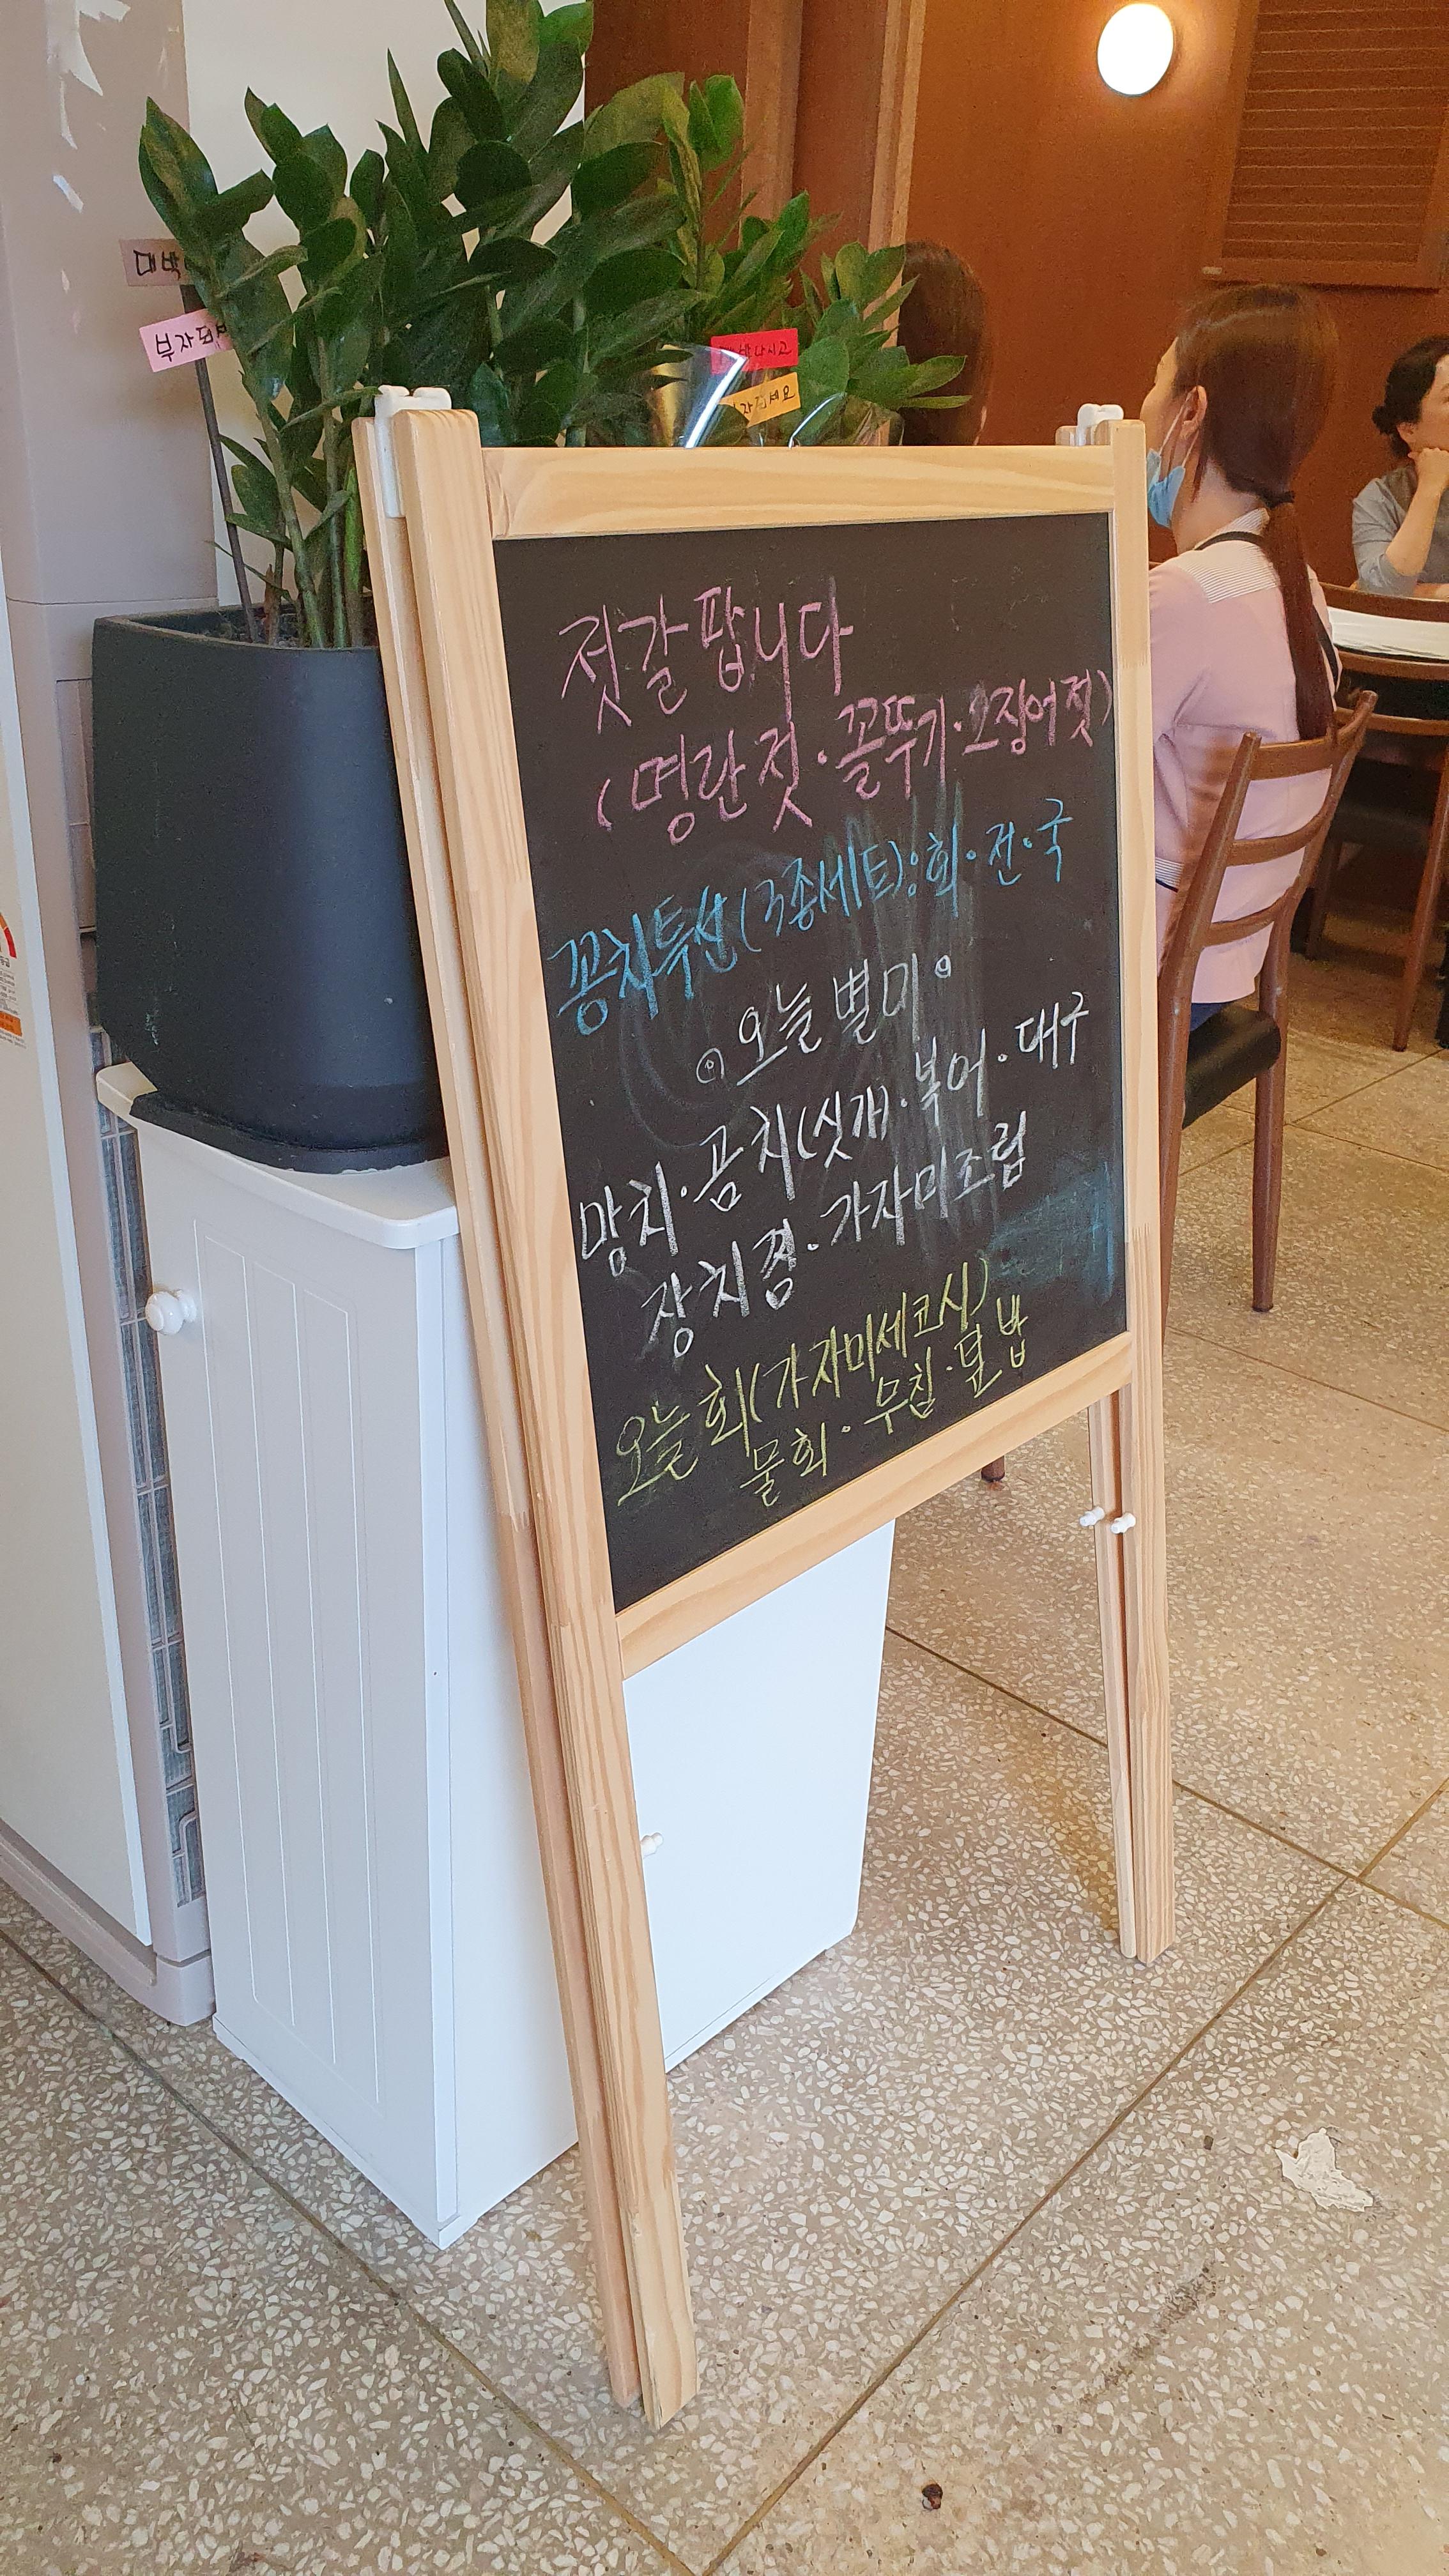 대박
부자되세
나시고
자되세요
젓갈 팝니다
(명란젓·꼴뚜기·오징어젓)
꽁치특선(3종세트):회·전·국
⊙오늘 별미⊙
망치·곰치(싯개)·북어·대구
장치찜·가자미조림
오늘 회(가자미세코시)
물회·무침·덮밥